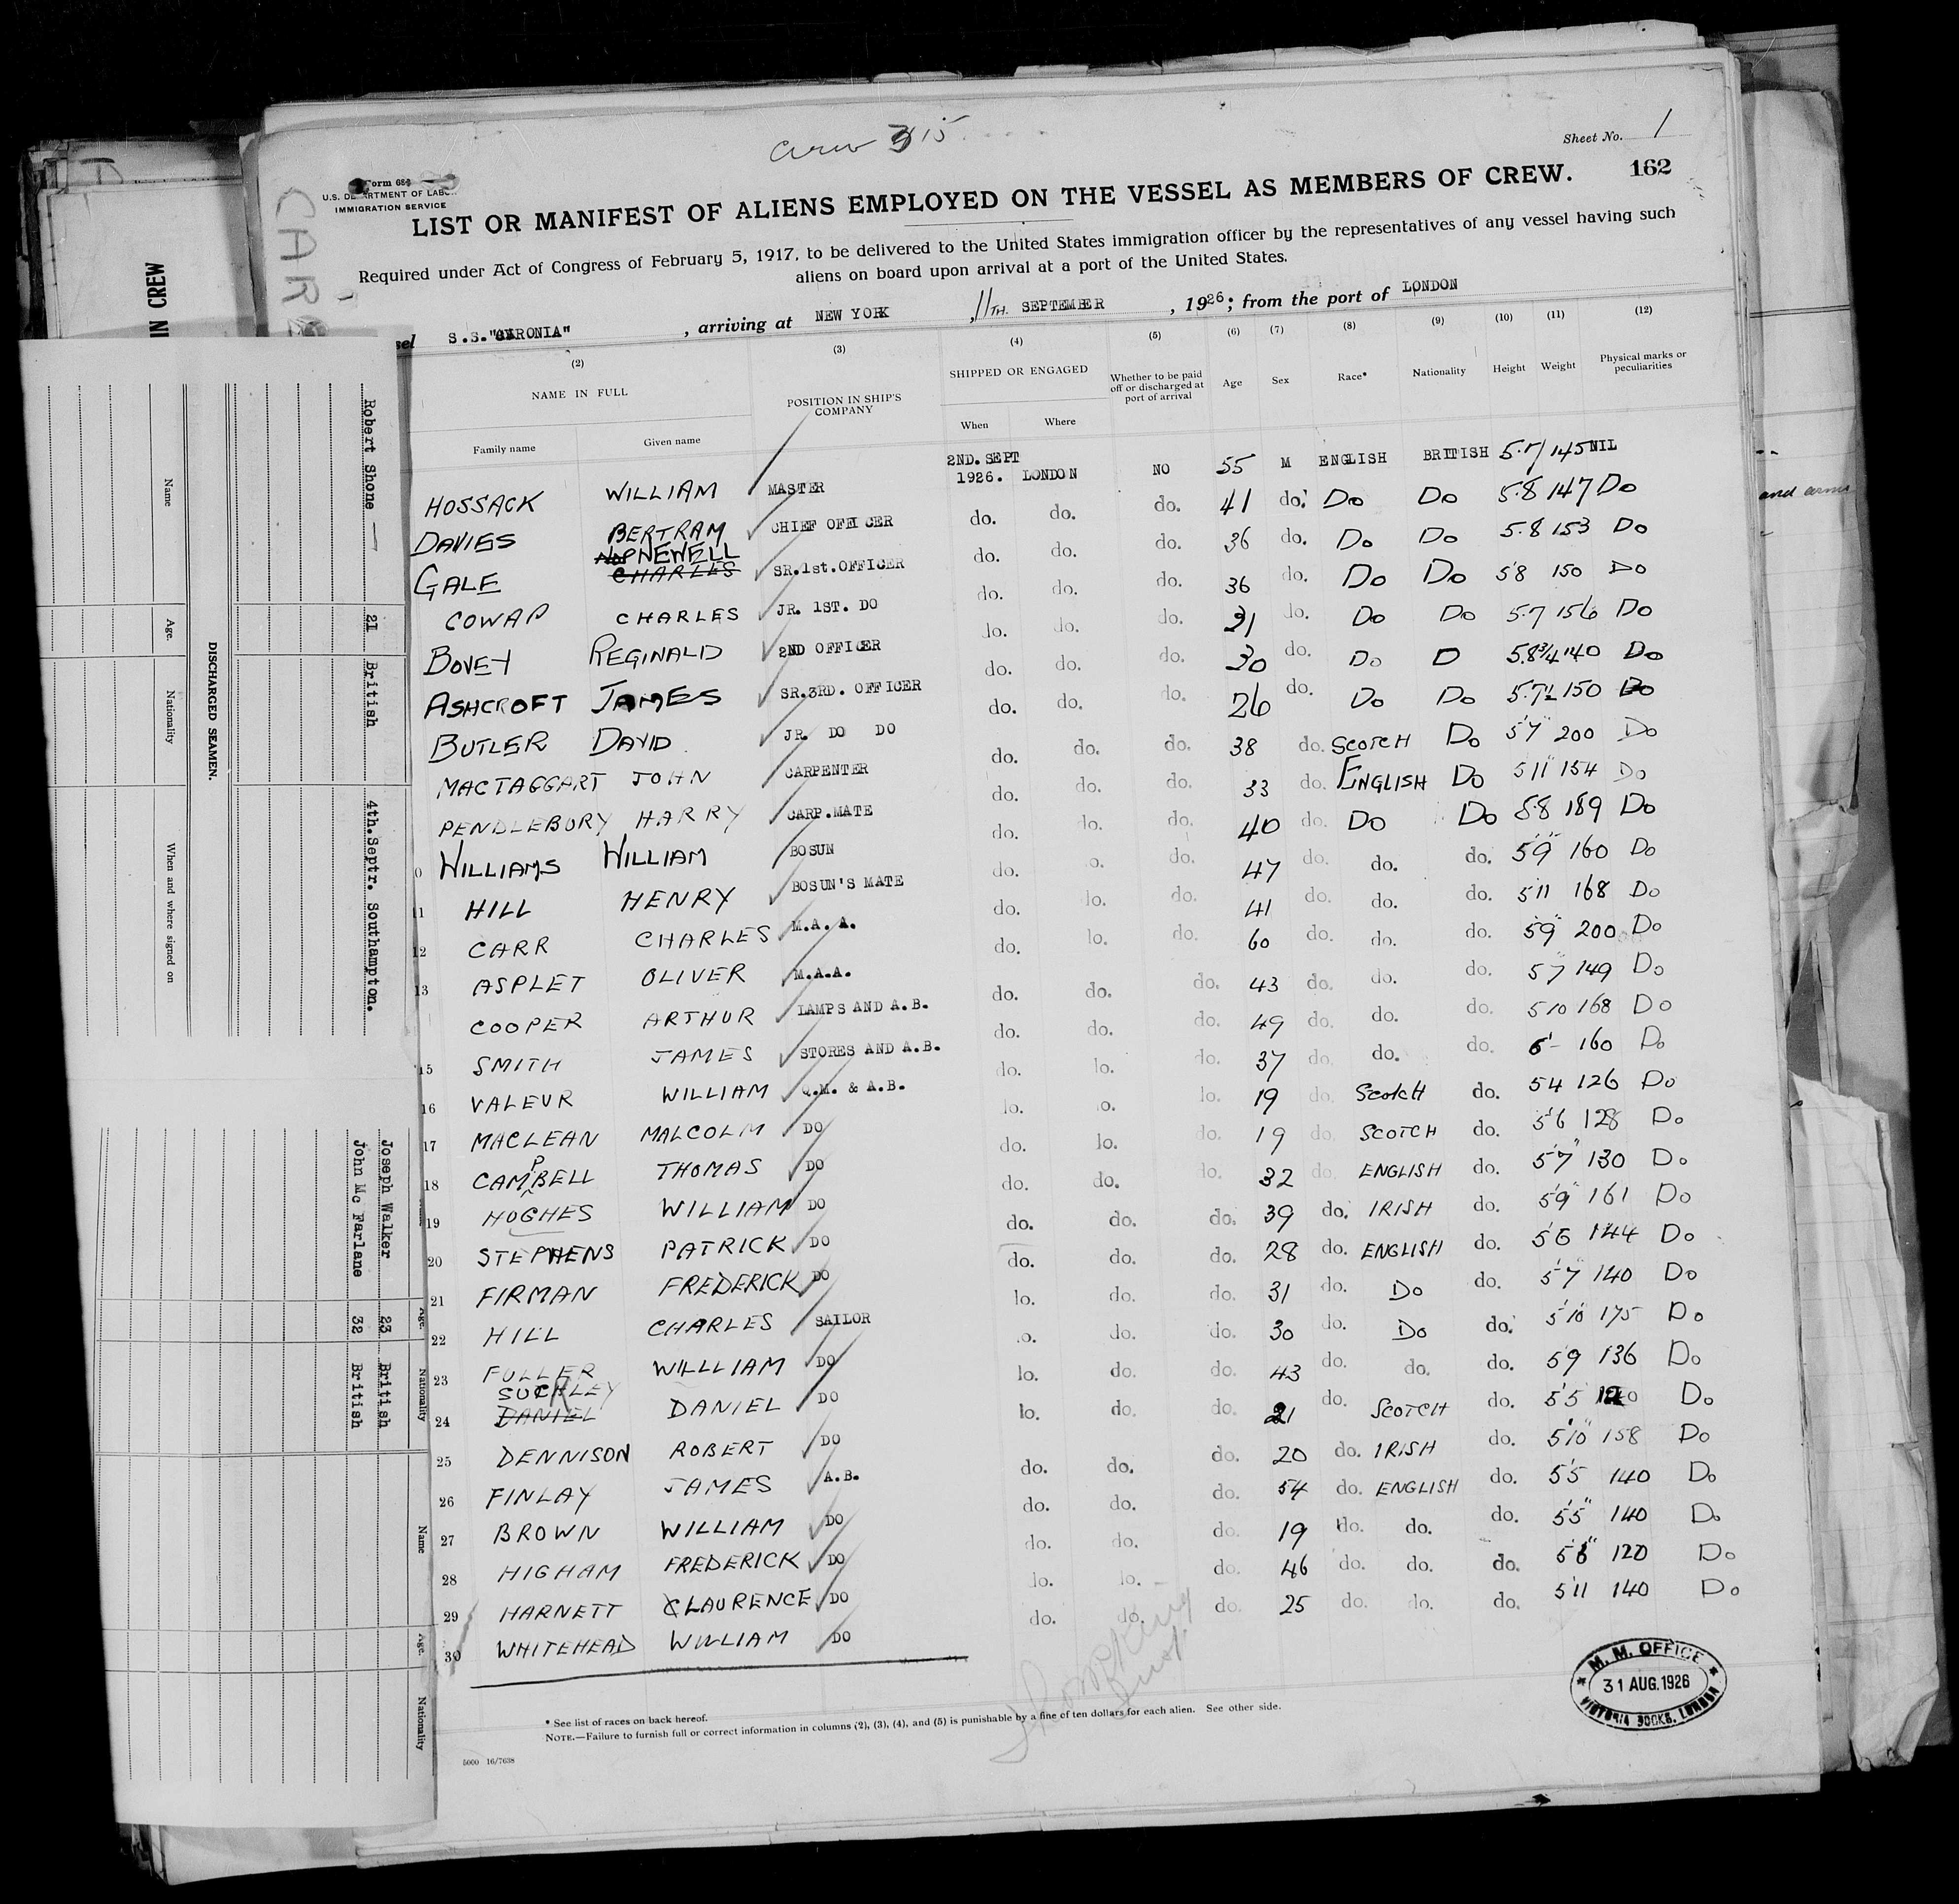 Crew 315
Sheet No. 1
162
Form 680
U.S. DEPARTMENT OF LABOR
IMMIGRATION SERVICE
LIST OR MANIFEST OF ALIENS EMPLOYED ON THE VESSEL AS MEMBERS OF CREW.
Required under Act of Congress of February 5, 1917, to be delivered to the United States immigration officer by the representatives of any vessel having such
aliens on board upon arrival at a port of the United States.
sel S.S."CARONIA", arriving at NEW YORK, 11TH. SEPTEMBER, 1926; from the port of LONDON
(2) (3) (4) (5) (6) (7) (8) (9) (10) (11) (12)
NAME IN FULL POSITION IN SHIP'S COMPANY SHIPPED OR ENGAGED Whether to be paid off or discharged at port of arrival Age Sex Race* Nationality Height Weight Physical marks or peculiarities
Family name Given name When Where
HOSSACK WILLIAM MASTER 2ND. SEPT 1926. LONDON NO 55 M ENGLISH BRITISH 5.7 145 NIL
DAVIES BERTRAM CHIEF OFFICER do. do. do. 41 do. Do Do 5.8 147 Do
GALE NEWELL CHARLES SR.1st.OFFICER do. do. do. 36 do. Do Do 5.8 153 Do
COWAP CHARLES JR. 1ST. DO do. do. do. 36 do. Do Do 5'8 150 Do
BOVEY REGINALD 2ND OFFICER do. do. do. 31 do. Do Do 5.7 156 Do
ASHCROFT JAMES SR.3RD. OFFICER do. do. do. 30 do. Do D 5.8¾ 140 Do
BUTLER DAVID JR. DO DO do. do. do. 26 do. Do Do 5.7½ 150 Do
MACTAGGART JOHN CARPENTER do. do. do. 38 do. SCOTCH Do 5'7" 200 Do
PENDLEBURY HARRY CARP.MATE do. do. do. 33 do. ENGLISH Do 5 11" 154 Do
0 WILLIAMS WILLIAM BOSUN do. do. do. 40 do. Do Do 5.8 189 Do
11 HILL HENRY BOSUN'S MATE do. do. do. 47 do. do. do. 5'9" 160 Do
12 CARR CHARLES M.A.A. do. do. do. 41 do. do. do. 5 11 168 Do
13 ASPLET OLIVER M.A.A. do. do. do. 60 do. do. do. 5'9" 200 Do
COOPER ARTHUR LAMPS AND A.B. do. do. do. 43 do. do. do. 5'7 149 Do
15 SMITH JAMES STORES AND A.B. do. do. do. 49 do. do. do. 5 10 168 Do
16 VALEUR WILLIAM Q.M. & A.B. do. do. do. 37 do. do. do. 6'- 160 Do
17 MACLEAN MALCOLM DO do. do. do. 19 do. SCOTCH do. 5 4 126 Do
18 CAMPBELL THOMAS DO do. do. do. 19 do. SCOTCH do. 5'6 128 Do
19 HUGHES WILLIAM DO do. do. do. 32 do. ENGLISH do. 5'7" 130 Do
20 STEPHENS PATRICK DO do. do. do. 39 do. IRISH do. 5'9" 161 Do
21 FIRMAN FREDERICK DO do. do. do. 28 do. ENGLISH do. 5'6 144 Do
22 HILL CHARLES SAILOR do. do. do. 31 do. Do do. 5'7" 140 Do
23 FULLER WILLLIAM DO do. do. do. 30 do. Do do. 5'10 175 Do
24 SUCKLEY DANIEL DANIEL DO do. do. do. 43 do. do. do. 5 9 136 Do
25 DENNISON ROBERT DO do. do. do. 21 do. SCOTCH do. 5'5 120 Do
26 FINLAY JAMES A.B. do. do. do. 20 do. IRISH do. 5'10" 158 Do
27 BROWN WILLIAM DO do. do. do. 54 do. ENGLISH do. 5'5 140 Do
28 HIGHAM FREDERICK DO do. do. do. 19 do. do. do. 5'5" 140 Do
29 HARNETT CLAURENCE DO do. do. do. 46 do. do. do. 5'6" 120 Do
30 WHITEHEAD WILLIAM DO do. do. do. 25 do. do. do. 5'11 140 Do
M. M. OFFICE
31 AUG. 1926
VICTORIA DOCKS, LONDON
* See list of races on back hereof.
NOTE.—Failure to furnish full or correct information in columns (2), (3), (4), and (5) is punishable by a fine of ten dollars for each alien. See other side.
5000 16/7638
IN CREW
CAR
and arms
DISCHARGED SEAMEN.
Name Age. Nationality When and where signed on
Robert Shone — 21 British 4th.Septr. Southampton.
Joseph Walker 23 British
John Mc Farlane 32 British
Age. Nationality Name Age. Nationality